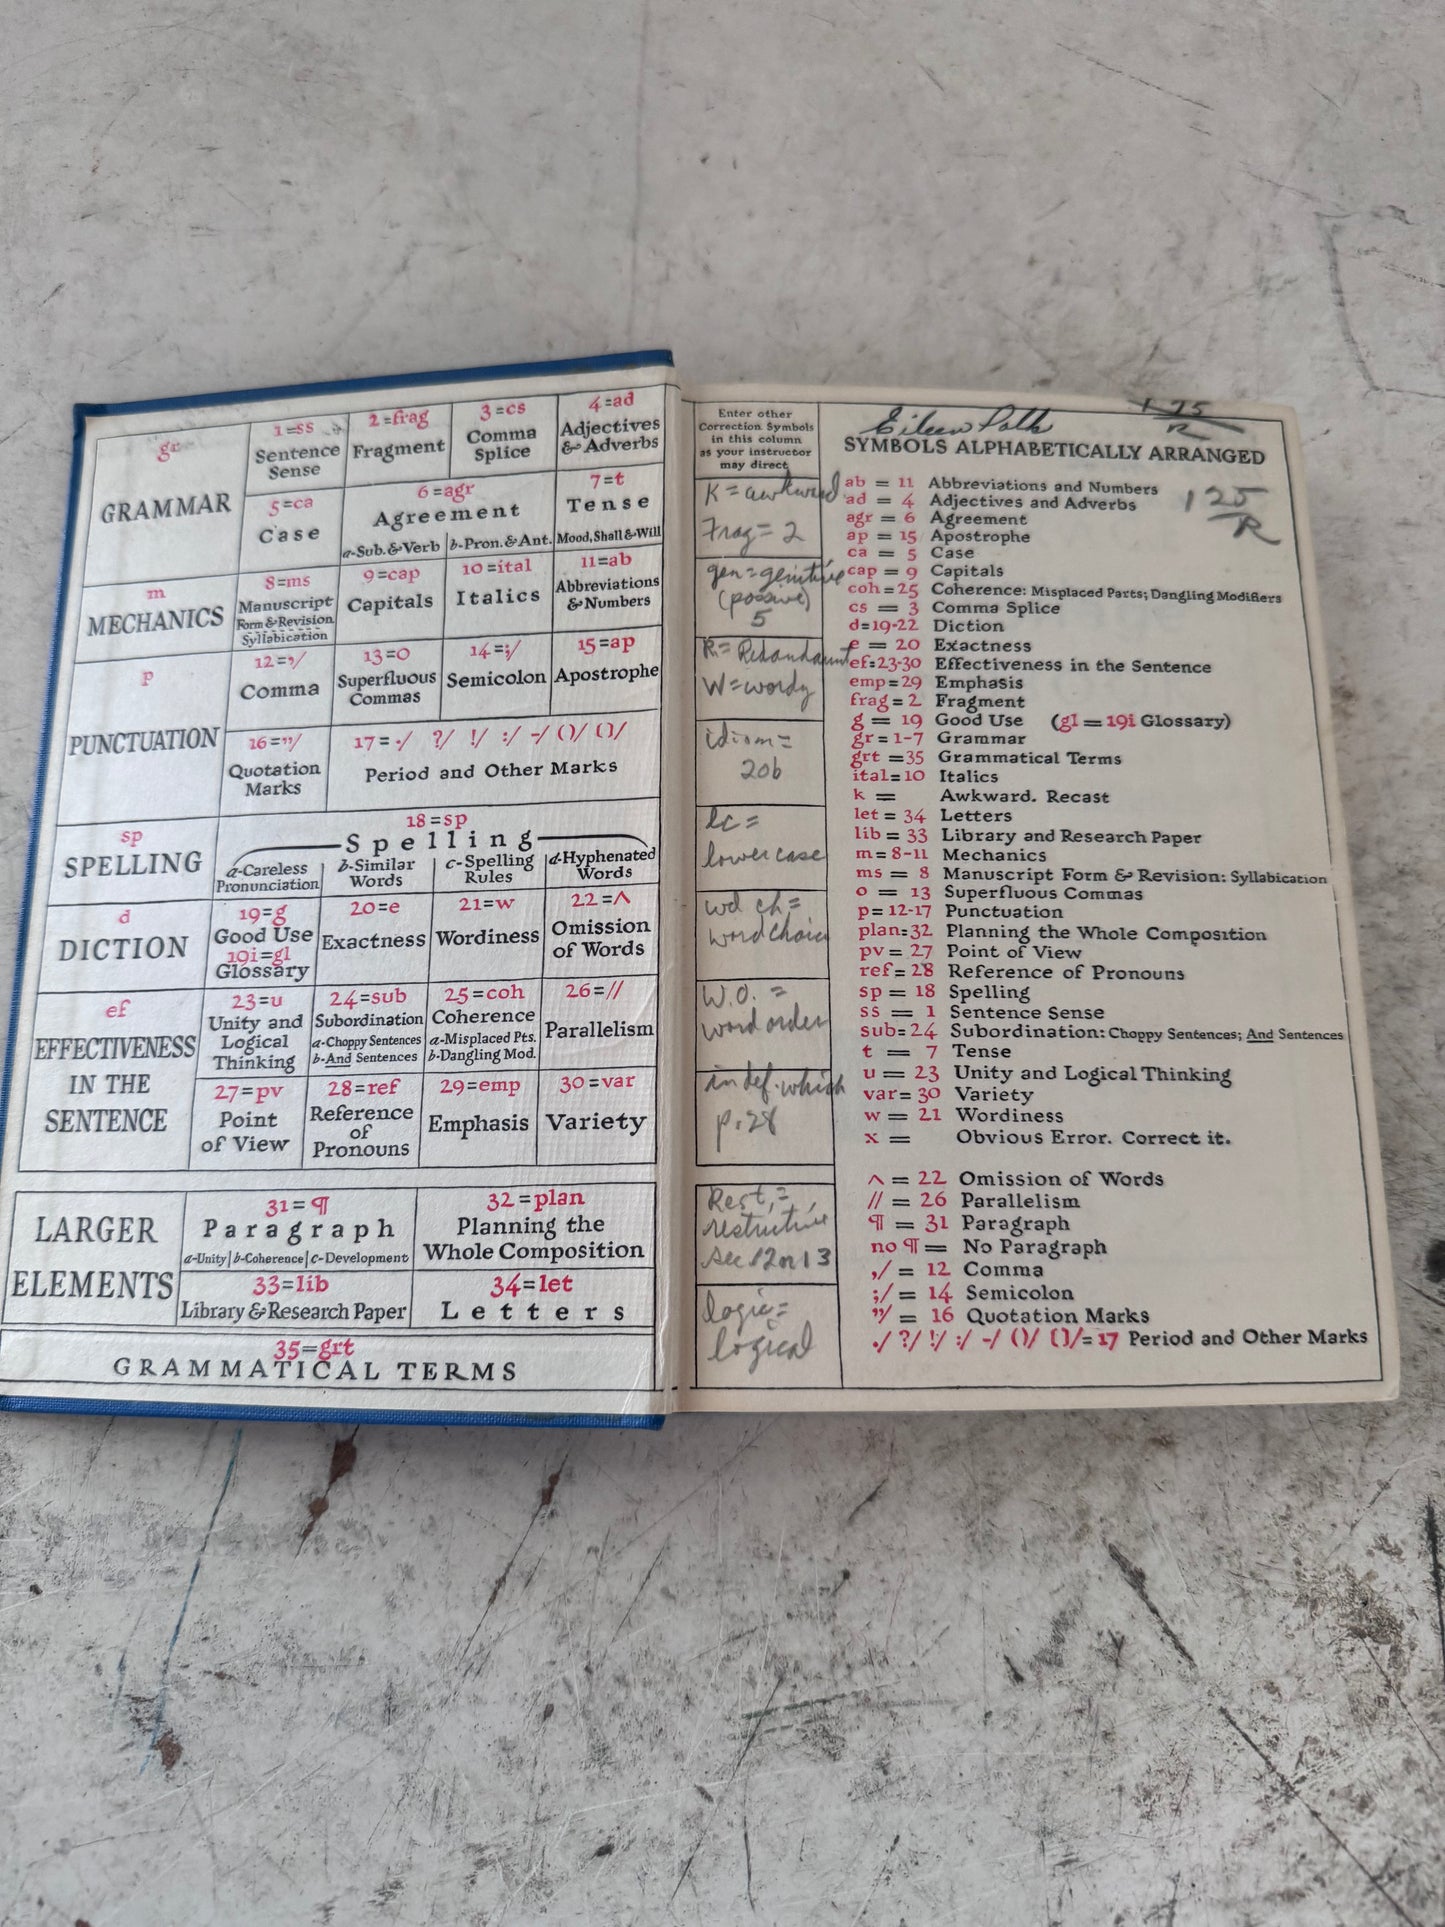 gr
GRAMMAR
1=ss
Sentence
Sense
2=frag
Fragment
3=cs
Comma
Splice
4=ad
Adjectives
& Adverbs
5=ca
Case
6=agr
Agreement
a-Sub. & Verb | b-Pron. & Ant.
7=t
Tense
Mood, Shall & Will
m
MECHANICS
8=ms
Manuscript
Form & Revision
Syllabication
9=cap
Capitals
10=ital
Italics
11=ab
Abbreviations
& Numbers
p
PUNCTUATION
12=,/
Comma
13=o
Superfluous
Commas
14=;/
Semicolon
15=ap
Apostrophe
16="/
Quotation
Marks
17= ./ ?/ !/ :/ -/ ()/ []/
Period and Other Marks
sp
SPELLING
18=sp
Spelling
a-Careless
Pronunciation
b-Similar
Words
c-Spelling
Rules
d-Hyphenated
Words
d
DICTION
19=g
Good Use
19i=gl
Glossary
20=e
Exactness
21=w
Wordiness
22=^
Omission
of Words
ef
EFFECTIVENESS
IN THE
SENTENCE
23=u
Unity and
Logical
Thinking
24=sub
Subordination
a-Choppy Sentences
b-And Sentences
25=coh
Coherence
a-Misplaced Pts.
b-Dangling Mod.
26=//
Parallelism
27=pv
Point
of View
28=ref
Reference
of
Pronouns
29=emp
Emphasis
30=var
Variety
LARGER
ELEMENTS
31=¶
Paragraph
a-Unity | b-Coherence | c-Development
32=plan
Planning the
Whole Composition
33=lib
Library & Research Paper
34=let
Letters
35=grt
GRAMMATICAL TERMS
Enter other
Correction Symbols
in this column
as your instructor
may direct
K = awkward
Frag = 2
gen = genitive
5
R = Redandaunt
W = wordy
idiom =
20b
lc =
lowercase
wd ch =
word choice
W.O. =
word order
indef. which
p. 28
Rest. =
restrictive
sec 12 or 13
logic =
logical
Eileen
1 75
R
SYMBOLS ALPHABETICALLY ARRANGED
1 25
R
ab = 11 Abbreviations and Numbers
ad = 4 Adjectives and Adverbs
agr = 6 Agreement
ap = 15 Apostrophe
ca = 5 Case
cap = 9 Capitals
coh = 25 Coherence: Misplaced Parts; Dangling Modifiers
cs = 3 Comma Splice
d=19-22 Diction
e = 20 Exactness
ef=23-30 Effectiveness in the Sentence
emp=29 Emphasis
frag = 2 Fragment
g = 19 Good Use (gl = 19i Glossary)
gr = 1-7 Grammar
grt =35 Grammatical Terms
ital=10 Italics
k = Awkward. Recast
let = 34 Letters
lib = 33 Library and Research Paper
m = 8-11 Mechanics
ms = 8 Manuscript Form & Revision: Syllabication
o = 13 Superfluous Commas
p=12-17 Punctuation
plan=32 Planning the Whole Composition
pv = 27 Point of View
ref = 28 Reference of Pronouns
sp = 18 Spelling
ss = 1 Sentence Sense
sub=24 Subordination: Choppy Sentences; And Sentences
t = 7 Tense
u = 23 Unity and Logical Thinking
var = 30 Variety
w = 21 Wordiness
x = Obvious Error. Correct it.
^ = 22 Omission of Words
// = 26 Parallelism
¶ = 31 Paragraph
no ¶ = No Paragraph
,/ = 12 Comma
;/ = 14 Semicolon
"/ = 16 Quotation Marks
./ ?/ !/ :/ -/ ()/ []/ = 17 Period and Other Marks